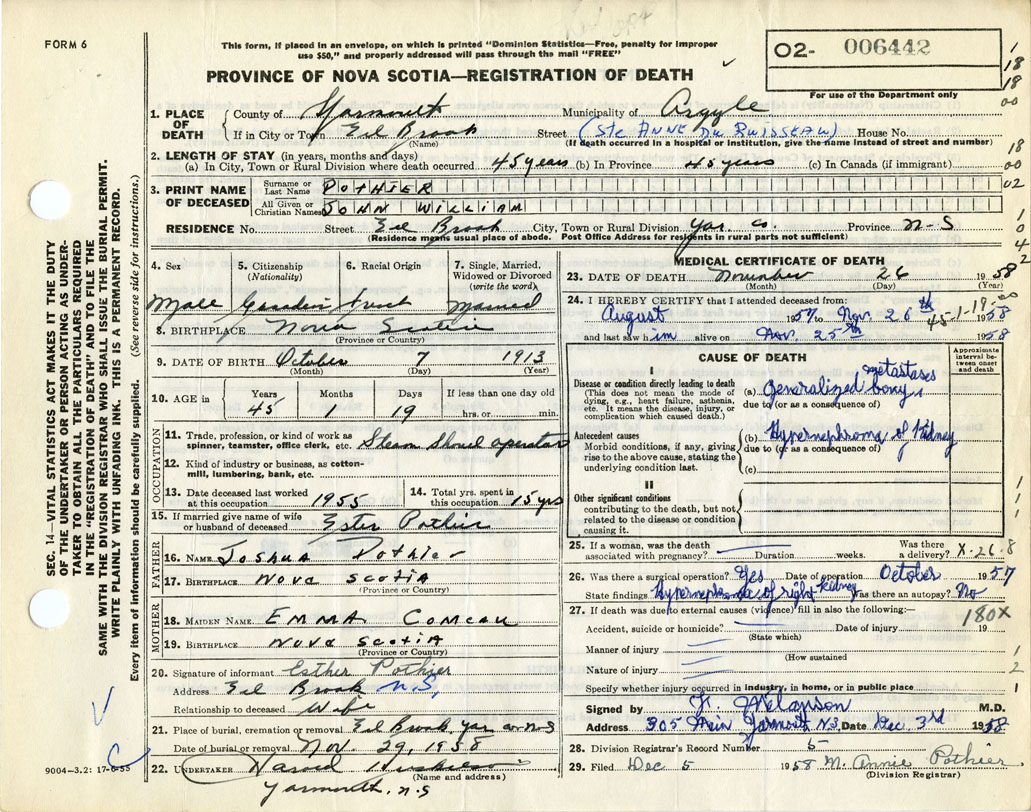 FORM 6
This form, if placed in an envelope, on which is printed "Dominion Statistics—Free, penalty for improper
use $50," and properly addressed will pass through the mail "FREE"
PROVINCE OF NOVA SCOTIA—REGISTRATION OF DEATH
O2- 006442
For use of the Department only
1. PLACE OF DEATH County of Yarmouth Municipality of Argyle
If in City or Town Eel Brook Street (Ste ANNE Du RUISSEAU) House No.
(Name) (If death occurred in a hospital or institution, give the name instead of street and number)
2. LENGTH OF STAY (in years, months and days)
(a) In City, Town or Rural Division where death occurred 45 years (b) In Province 45 years (c) In Canada (if immigrant)
3. PRINT NAME OF DECEASED Surname or Last Name POTHIER
All Given or Christian Names JOHN WILLIAM
RESIDENCE No. Street Eel Brook City, Town or Rural Division Yar. Co. Province N-S
(Residence means usual place of abode. Post Office Address for residents in rural parts not sufficient)
4. Sex 5. Citizenship (Nationality) 6. Racial Origin 7. Single, Married, Widowed or Divorced (write the word)
Male Canadien French Married
8. BIRTHPLACE Nova Scotia
(Province or Country)
9. DATE OF BIRTH October 7 1913
(Month) (Day) (Year)
10. AGE in Years Months Days If less than one day old
45 1 19 hrs. or min.
OCCUPATION
11. Trade, profession, or kind of work as spinner, teamster, office clerk, etc. Steam Shovel operator
12. Kind of industry or business, as cotton-mill, lumbering, bank, etc.
13. Date deceased last worked at this occupation 1955 14. Total yrs. spent in this occupation 15 yrs
15. If married give name of wife or husband of deceased Ester Pothier
FATHER
16. NAME Joshua Pothier
17. BIRTHPLACE NOVA SCOTIA
(Province or Country)
MOTHER
18. MAIDEN NAME EMMA COMEAU
19. BIRTHPLACE NOVA SCOTIA
(Province or Country)
20. Signature of informant Esther Pothier
Address Eel Brook N.S,
Relationship to deceased Wife
21. Place of burial, cremation or removal Eel Brook Yar co N-S
Date of burial or removal Nov. 29, 1958
22. UNDERTAKER Harold
(Name and address)
Yarmouth, N-S
9004-3.2: 17-6-55
SEC. 14—VITAL STATISTICS ACT MAKES IT THE DUTY
OF THE UNDERTAKER OR PERSON ACTING AS UNDER-
TAKER TO OBTAIN ALL THE PARTICULARS REQUIRED
IN THE "REGISTRATION OF DEATH" AND TO FILE THE
SAME WITH THE DIVISION REGISTRAR WHO SHALL ISSUE THE BURIAL PERMIT.
WRITE PLAINLY WITH UNFADING INK. THIS IS A PERMANENT RECORD.
Every item of information should be carefully supplied. (See reverse side for instructions.)
MEDICAL CERTIFICATE OF DEATH
23. DATE OF DEATH November 26 1958
(Month) (Day) (Year)
24. I HEREBY CERTIFY that I attended deceased from:
August 1957 to Nov. 26th 1958
45-1-19
and last saw him alive on Nov. 25th 1958
CAUSE OF DEATH
Approximate interval between onset and death
I
Disease or condition directly leading to death
(This does not mean the mode of dying, e.g., heart failure, asthenia, etc. It means the disease, injury, or complication which caused death.)
(a) Generalized bony metastases
due to (or as a consequence of)
Antecedent causes
Morbid conditions, if any, giving rise to the above cause, stating the underlying condition last.
(b) Hypernephroma of kidney
due to (or as a consequence of)
(c)
II
Other significant conditions
contributing to the death, but not related to the disease or condition causing it.
25. If a woman, was the death associated with pregnancy? Duration weeks. Was there a delivery? X-26-8
26. Was there a surgical operation? Yes Date of operation October 1957
State findings Hypernephroma of right kidney Was there an autopsy? No
27. If death was due to external causes (violence) fill in also the following:— 180X
Accident, suicide or homicide? Date of injury 19
(State which)
Manner of injury
(How sustained
Nature of injury
Specify whether injury occurred in industry, in home, or in public place
Signed by Melanson M.D.
Address 305 Main Yarmouth N.S, Date Dec 3rd 1958
28. Division Registrar's Record Number 5
29. Filed Dec 5 1958 M. Annie Pothier
(Division Registrar)
1
18
18
00
18
00
02
1
0
4
2
1
1
1
1
2
1